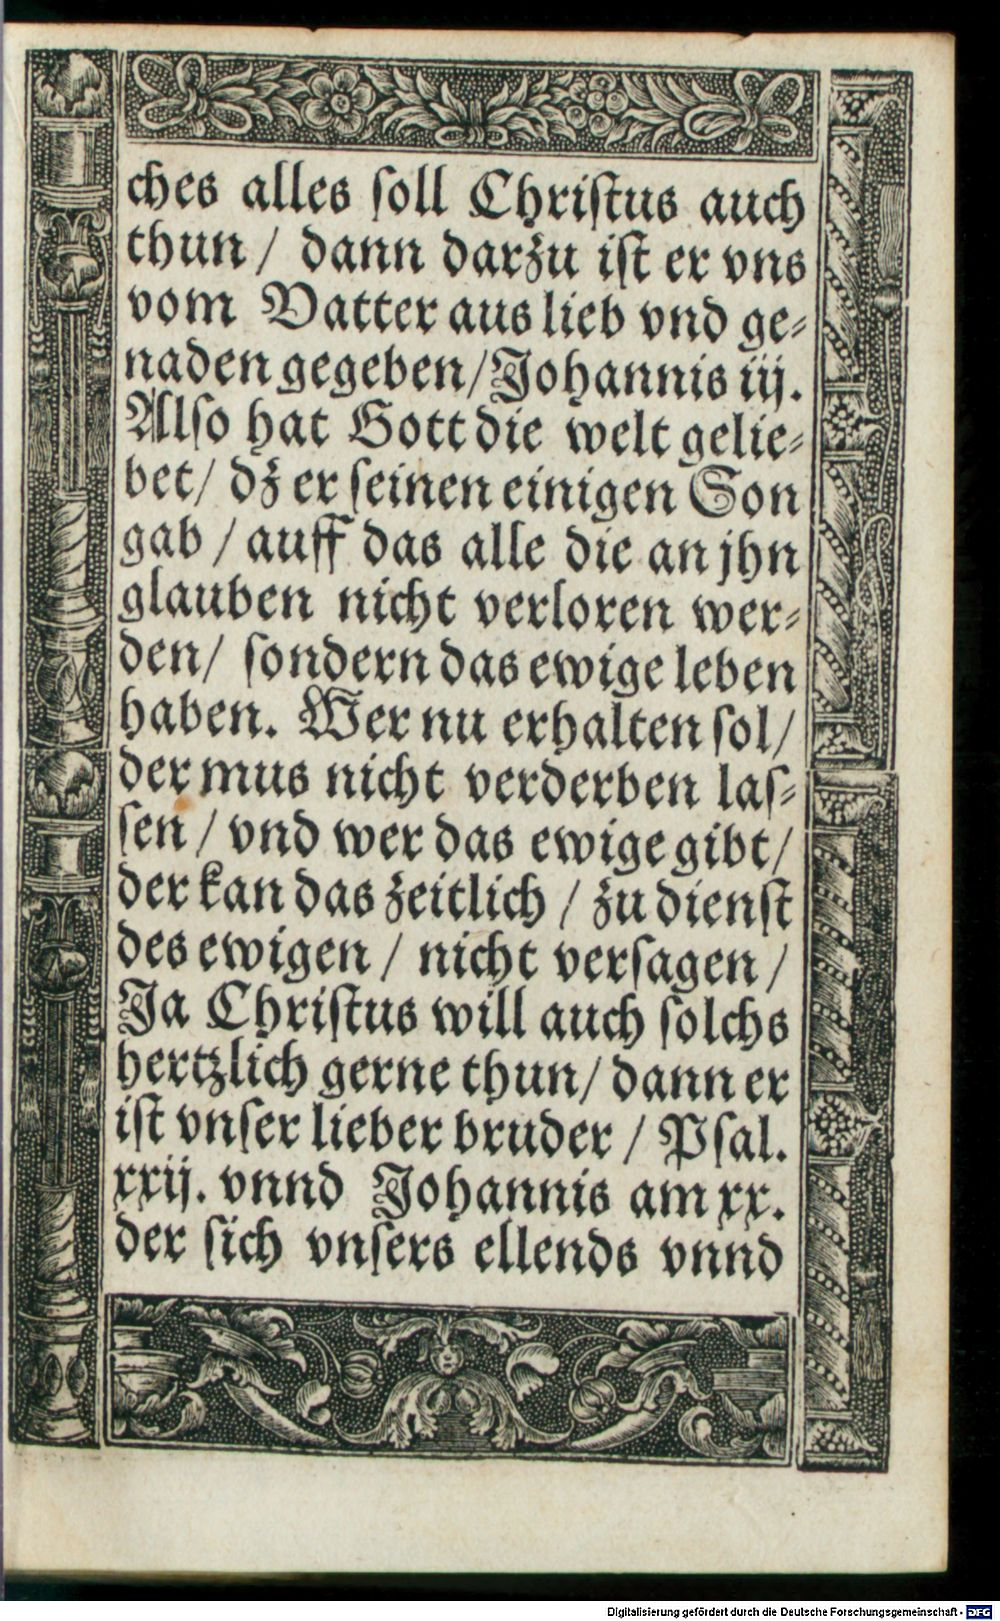 ches alles ſoll Chriſtus auch
thun / dann darzu iſt er vns
vom Vatter aus lieb vnd ge⸗
naden gegeben / Johannis iij.
Alſo hat Gott die welt gelie⸗
bet / dz er ſeinen einigen Son
gab / auff das alle die an jhn
glauben nicht verloren wer⸗
den / ſondern das ewige leben
haben. Wer nu erhalten ſol /
der mus nicht verderben laſ⸗
ſen / vnd wer das ewige gibt /
der kan das zeitlich / zu dienſt
des ewigen / nicht verſagen /
Ja Chriſtus will auch ſolchs
hertzlich gerne thun / dann er
iſt vnſer lieber bruder / Pſal.
xxij. vnnd Johannis am xx.
der ſich vnſers ellends vnnd
Digitalisierung gefördert durch die Deutsche Forschungsgemeinschaft - DFG